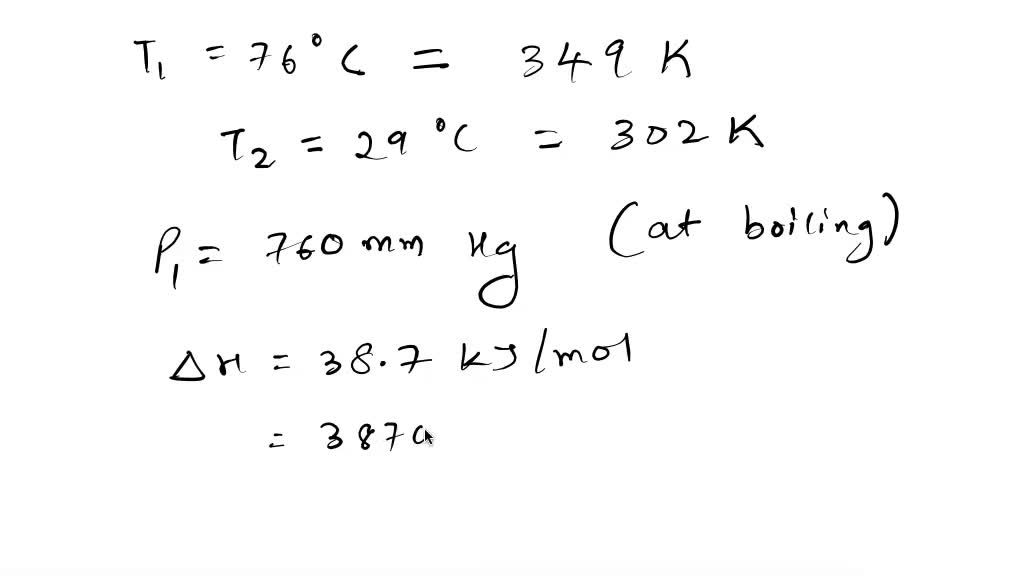 T₁ = 76°C = 349 K
T₂ = 29°C = 302 K
P₁ = 760 mm Hg (at boiling)
ΔH = 38.7 kJ/mol
= 3870